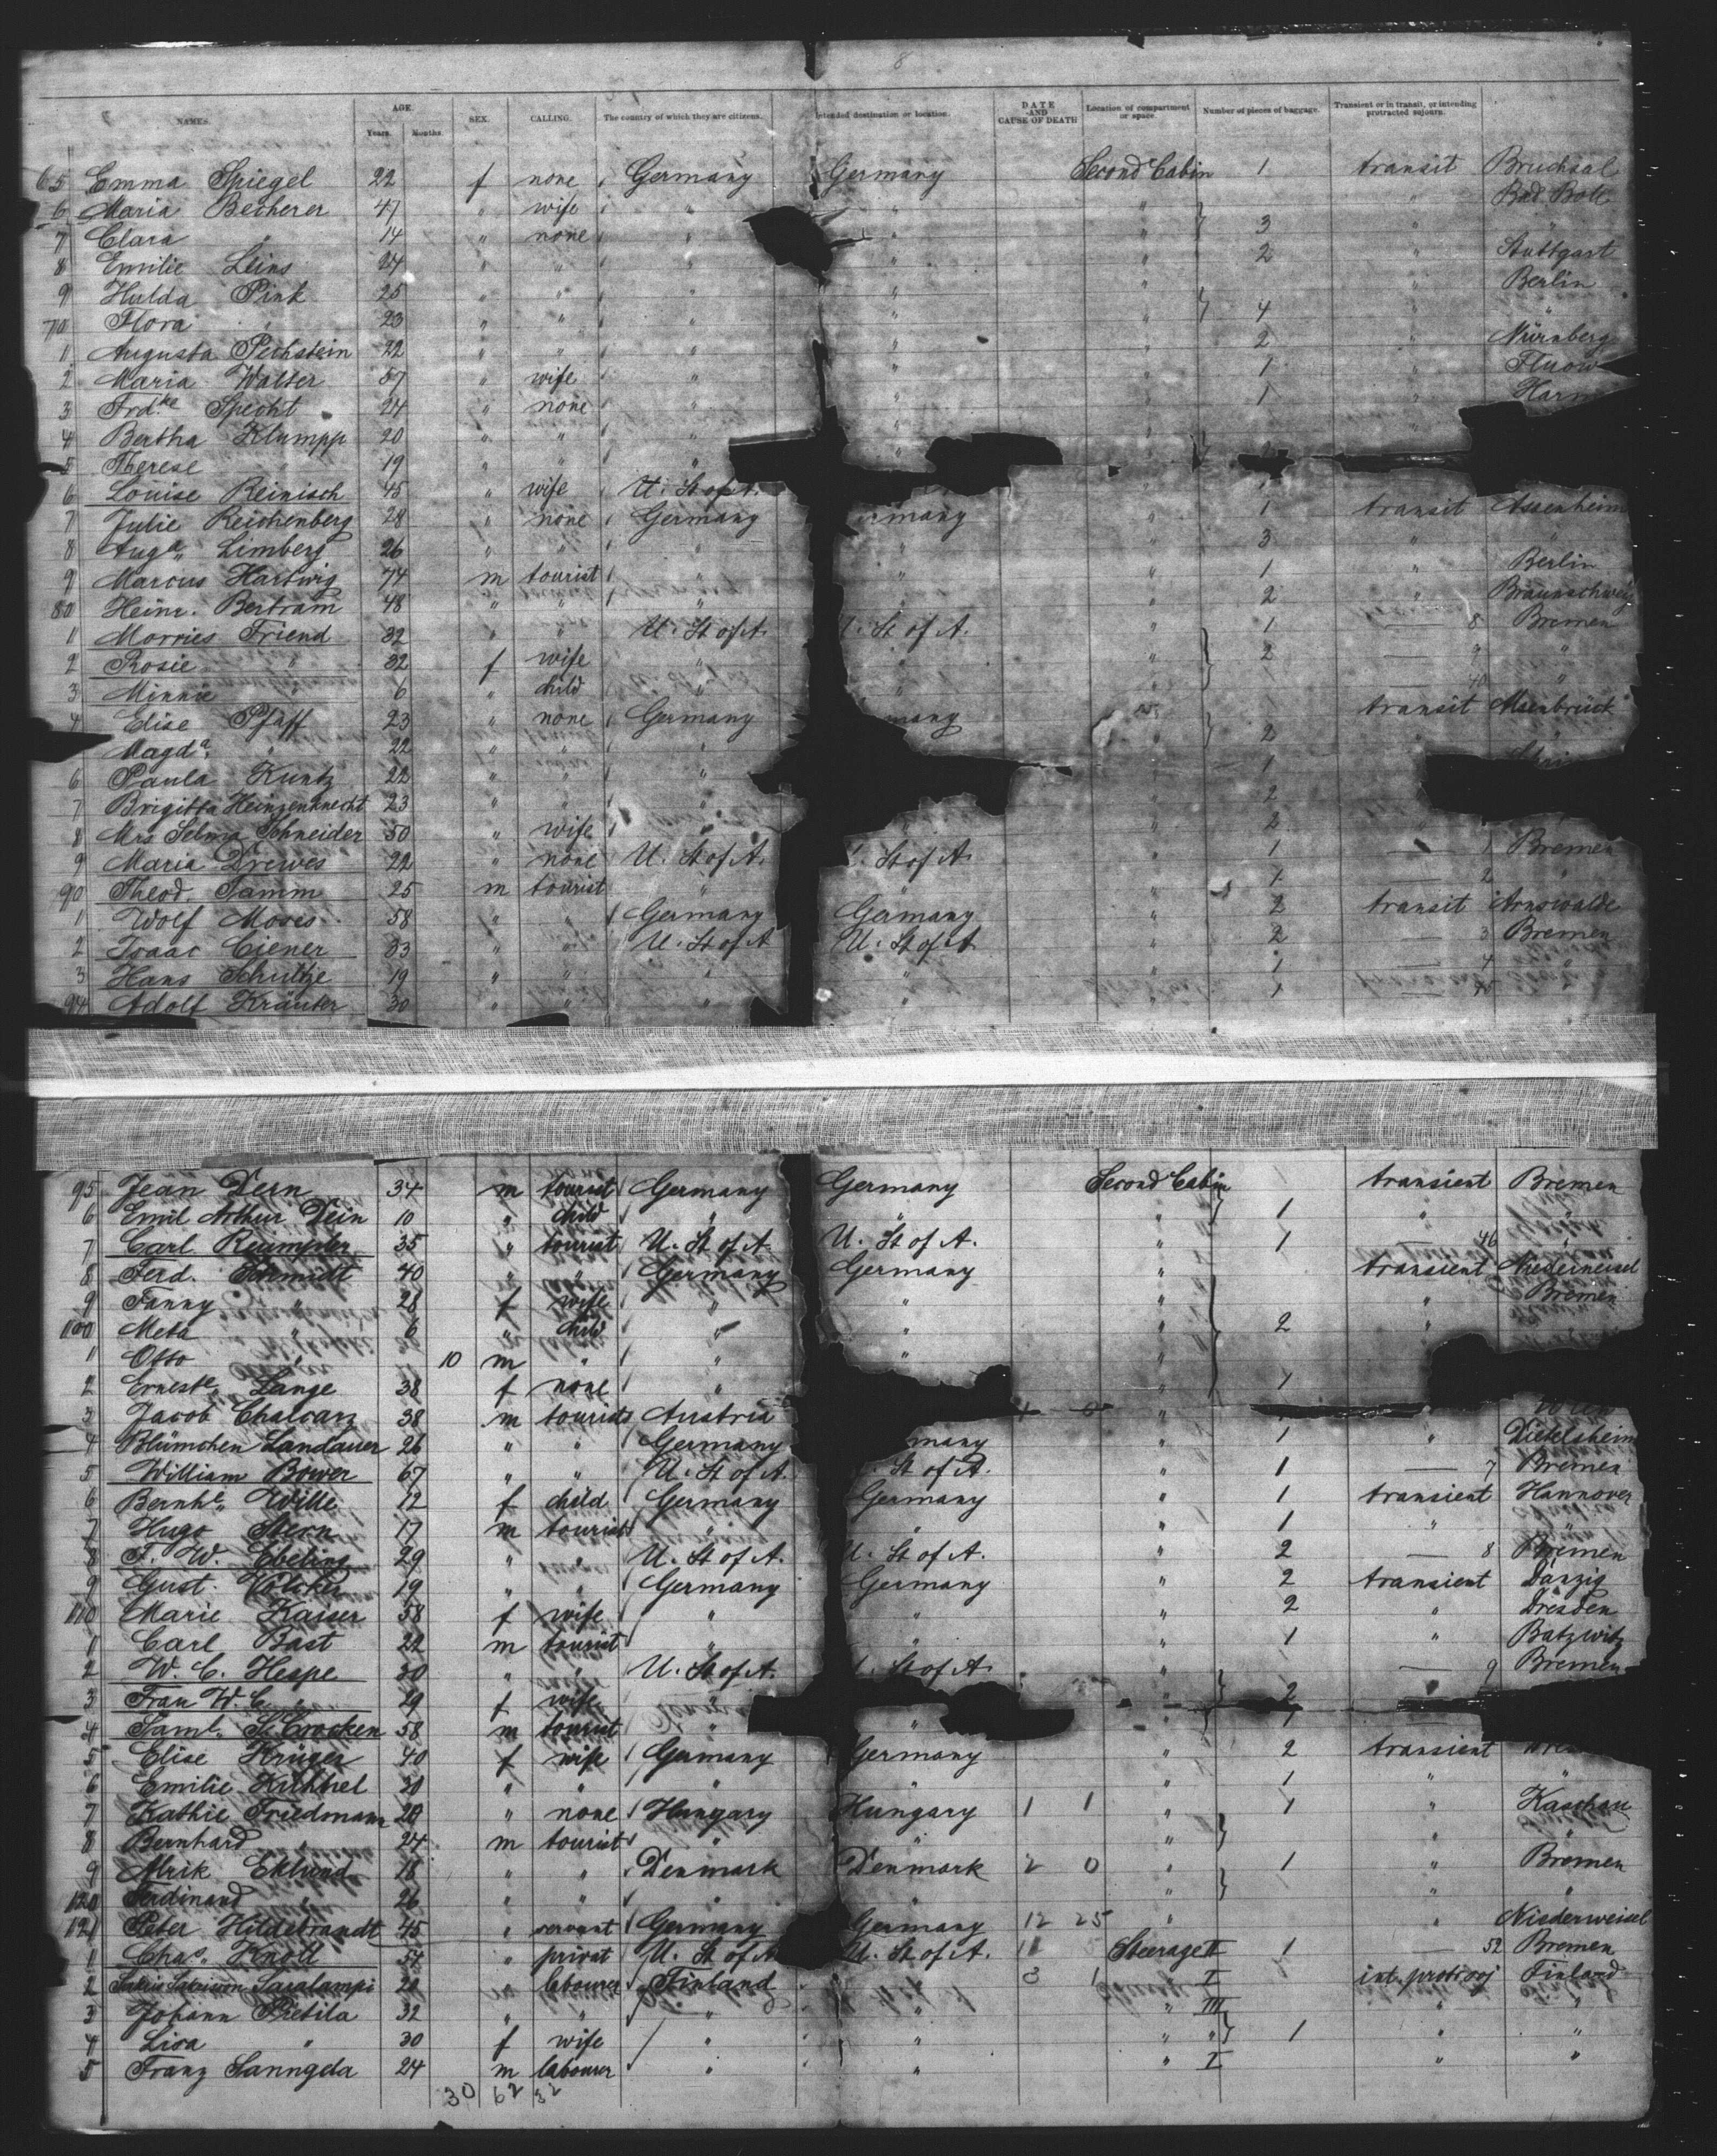 8
NAMES. AGE. Years. Months. SEX. CALLING. The country of which they are citizens. Intended destination or location. DATE AND CAUSE OF DEATH Location of compartment or space. Number of pieces of baggage. Transient or in transit, or intending protracted sojourn.
65 Emma Spiegel 22 f none Germany Germany Second Cabin 1 transit Bruchsal
6 Maria Becherer 47 " wife " " " " Bad Boll
7 Clara " 14 " none " " " 3 " "
8 Emilie Leins 24 " " " " " 2 " Stuttgart
9 Hulda Pink 25 " " " " " " Berlin
70 Flora " 23 " " " " " 4 " "
1 Augusta Pechstein 22 " " " " " 2 " Nürnberg
2 Maria Walter 57 " wife " " " 1 "
3 Frd.ke Specht 24 " none " " " 1 "
4 Bertha Klumpp 20 " " " "
5 Therese " 19 " " "
6 Louise Reinisch 45 " wife U. St of A.
7 Julie Reichenberg 28 " none Germany " 1 transit Assenheim
8 Aug.e Limberg 26 " " " " " 3 " "
9 Marcus Hartwig 74 m tourist " " " 1 " Berlin
80 Heinr. Bertram 48 " " " " " 2 " Braunschweig
1 Morries Friend 32 " " U. St of A. U. St of A. " 1 — 8 Bremen
2 Rosie " 32 f wife " " " 2 — 9 "
3 Minnie " 6 " child " " " 40 "
4 Elise Pfaff 23 " none Germany " transit
Magd.a " 22 " " " " 2
6 Paula Kuntz 22 " " " " 1
7 Brigitta Heinzenknecht 23 " " " " 2
8 Mrs Selma Schneider 50 " wife " " " 2
9 Maria Drewes 22 " none U. St of A. St of A. " 1 — 1 Bremen
90 Theod. Tamm 25 m tourist " " " 1 — 2 "
1 Wolf Moses 58 " " Germany Germany " 2 transit Arnswalde
2 Isaac Ciener 33 " " U. St of A U. St of A " 2 — 3 Bremen
3 Hans Schultze 19 " " " " " 1 — 4 "
94 Adolf Kräuter 30 " " " " " 1 — 45 "
95 Jean Dern 34 m tourist Germany Germany Second Cabin transient Bremen
6 Emil Arthur Dein 10 " child " " " 1 " "
7 Carl Reumpler 35 " tourist U. St of A. U. St of A. " 1 — 46 "
8 Ferd. Schmidt 40 " " Germany Germany " transient Niederweisel
9 Fanny " 28 f wife " " " " Bremen
100 Meta " 6 " child " " " 2
1 Otto " 10 m " " " "
2 Ernest.e Lange 38 f none " " 1
3 Jacob Chalcarz 38 m tourist Austria "
4 Blümchen Landauer 26 " " Germany many " 1 " Dietelsheim
5 William Bower 67 " " U. St of A. St of A. " 1 — 7 Bremen
6 Bernh.e Wille 12 f child Germany Germany " 1 transient Hannover
7 Hugo Stern 17 m tourist " " " 1 " "
8 F. W. Ebeling 29 " " U. St of A. U. St of A. " 2 — 8 Bremen
9 Gust. Völcker 19 " " Germany Germany " 2 transient Danzig
110 Marie Kaiser 58 f wife " " " 2 " Dresden
1 Carl Bast 22 m tourist " " " 1 " Batzwitz
2 W. C. Hespe 30 " " U. St of A. St of A. " — 9 Bremen
3 Frau W. C. " 29 f wife " 2
4 Saml. S. Crocken 58 m tourist " " 1
5 Elise Krüger 40 f wife Germany Germany " 2 transient
6 Emilie Kühnel 30 " " " " " 1 " "
7 Kathie Friedmann 20 " none Hungary Hungary 1 1 " 1 " Kaschau
8 Bernhard " 24 m tourist " " " " "
9 Alrik Eklund 18 " " Denmark Denmark 2 0 " 1 " Bremen
120 Ferdinand " 26 " " " " " " "
121 Peter Hildebrandt 45 " servant Germany Germany 12 25 " " Niederweisel
1 Chas. Knoll 54 " privat U. St of A U. St of A. 11 5 Steerage II 1 — 52 Bremen
2 Saralampi 20 " labourer Finland " 3 1 " I int. protr. soj Finland
3 Johann Pietila 32 " " " " " III " "
4 Lisa " 30 f wife " " " " 1 " "
5 Franz Sanngda 24 m labourer " " " I " "
30 62 32